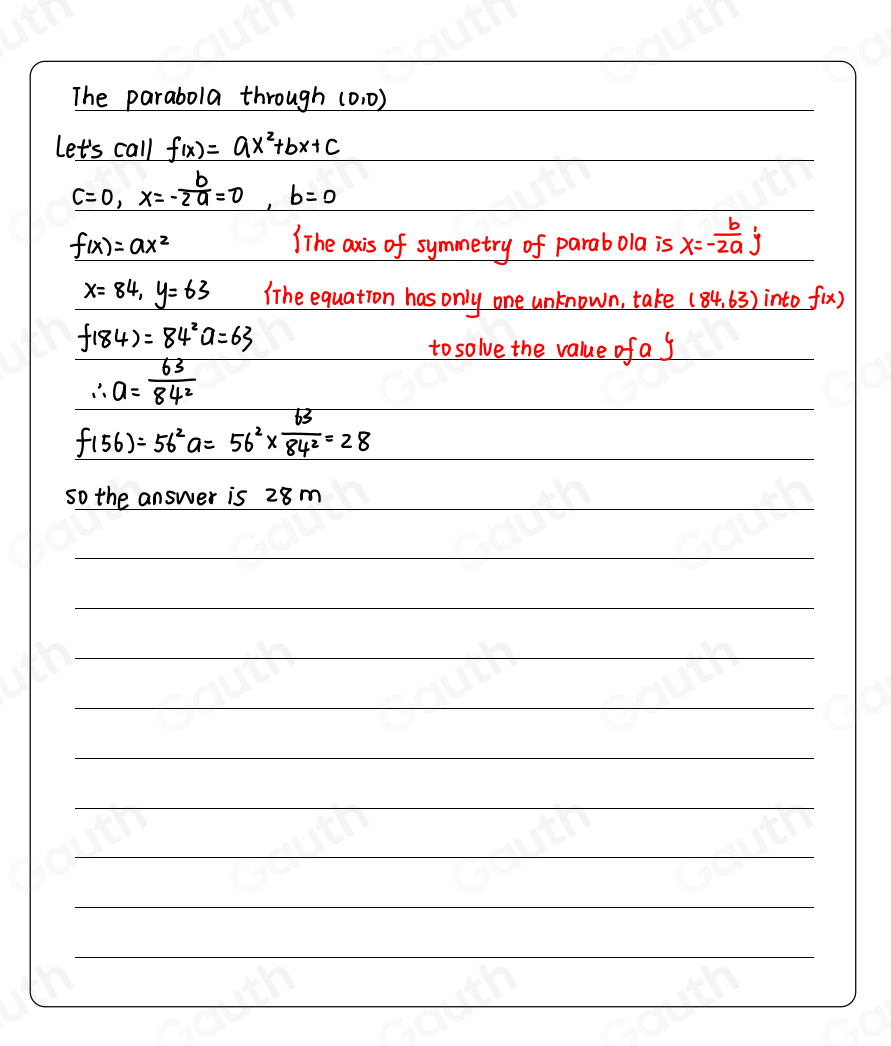 The parabola through (0,0)
Let's call f(x)= ax²+bx+c
c=0, x=-b/2a=0 , b=0
f(x)=ax² {The axis of symmetry of parabola is x=-b/2a}
x=84, y=63 {The equation has only one unknown, take (84,63) into f(x)
f(84)=84²a=63 to solve the value of a}
∴a=63/84²
f(56)=56²a= 56²×63/84²=28
so the answer is 28m
Gauth